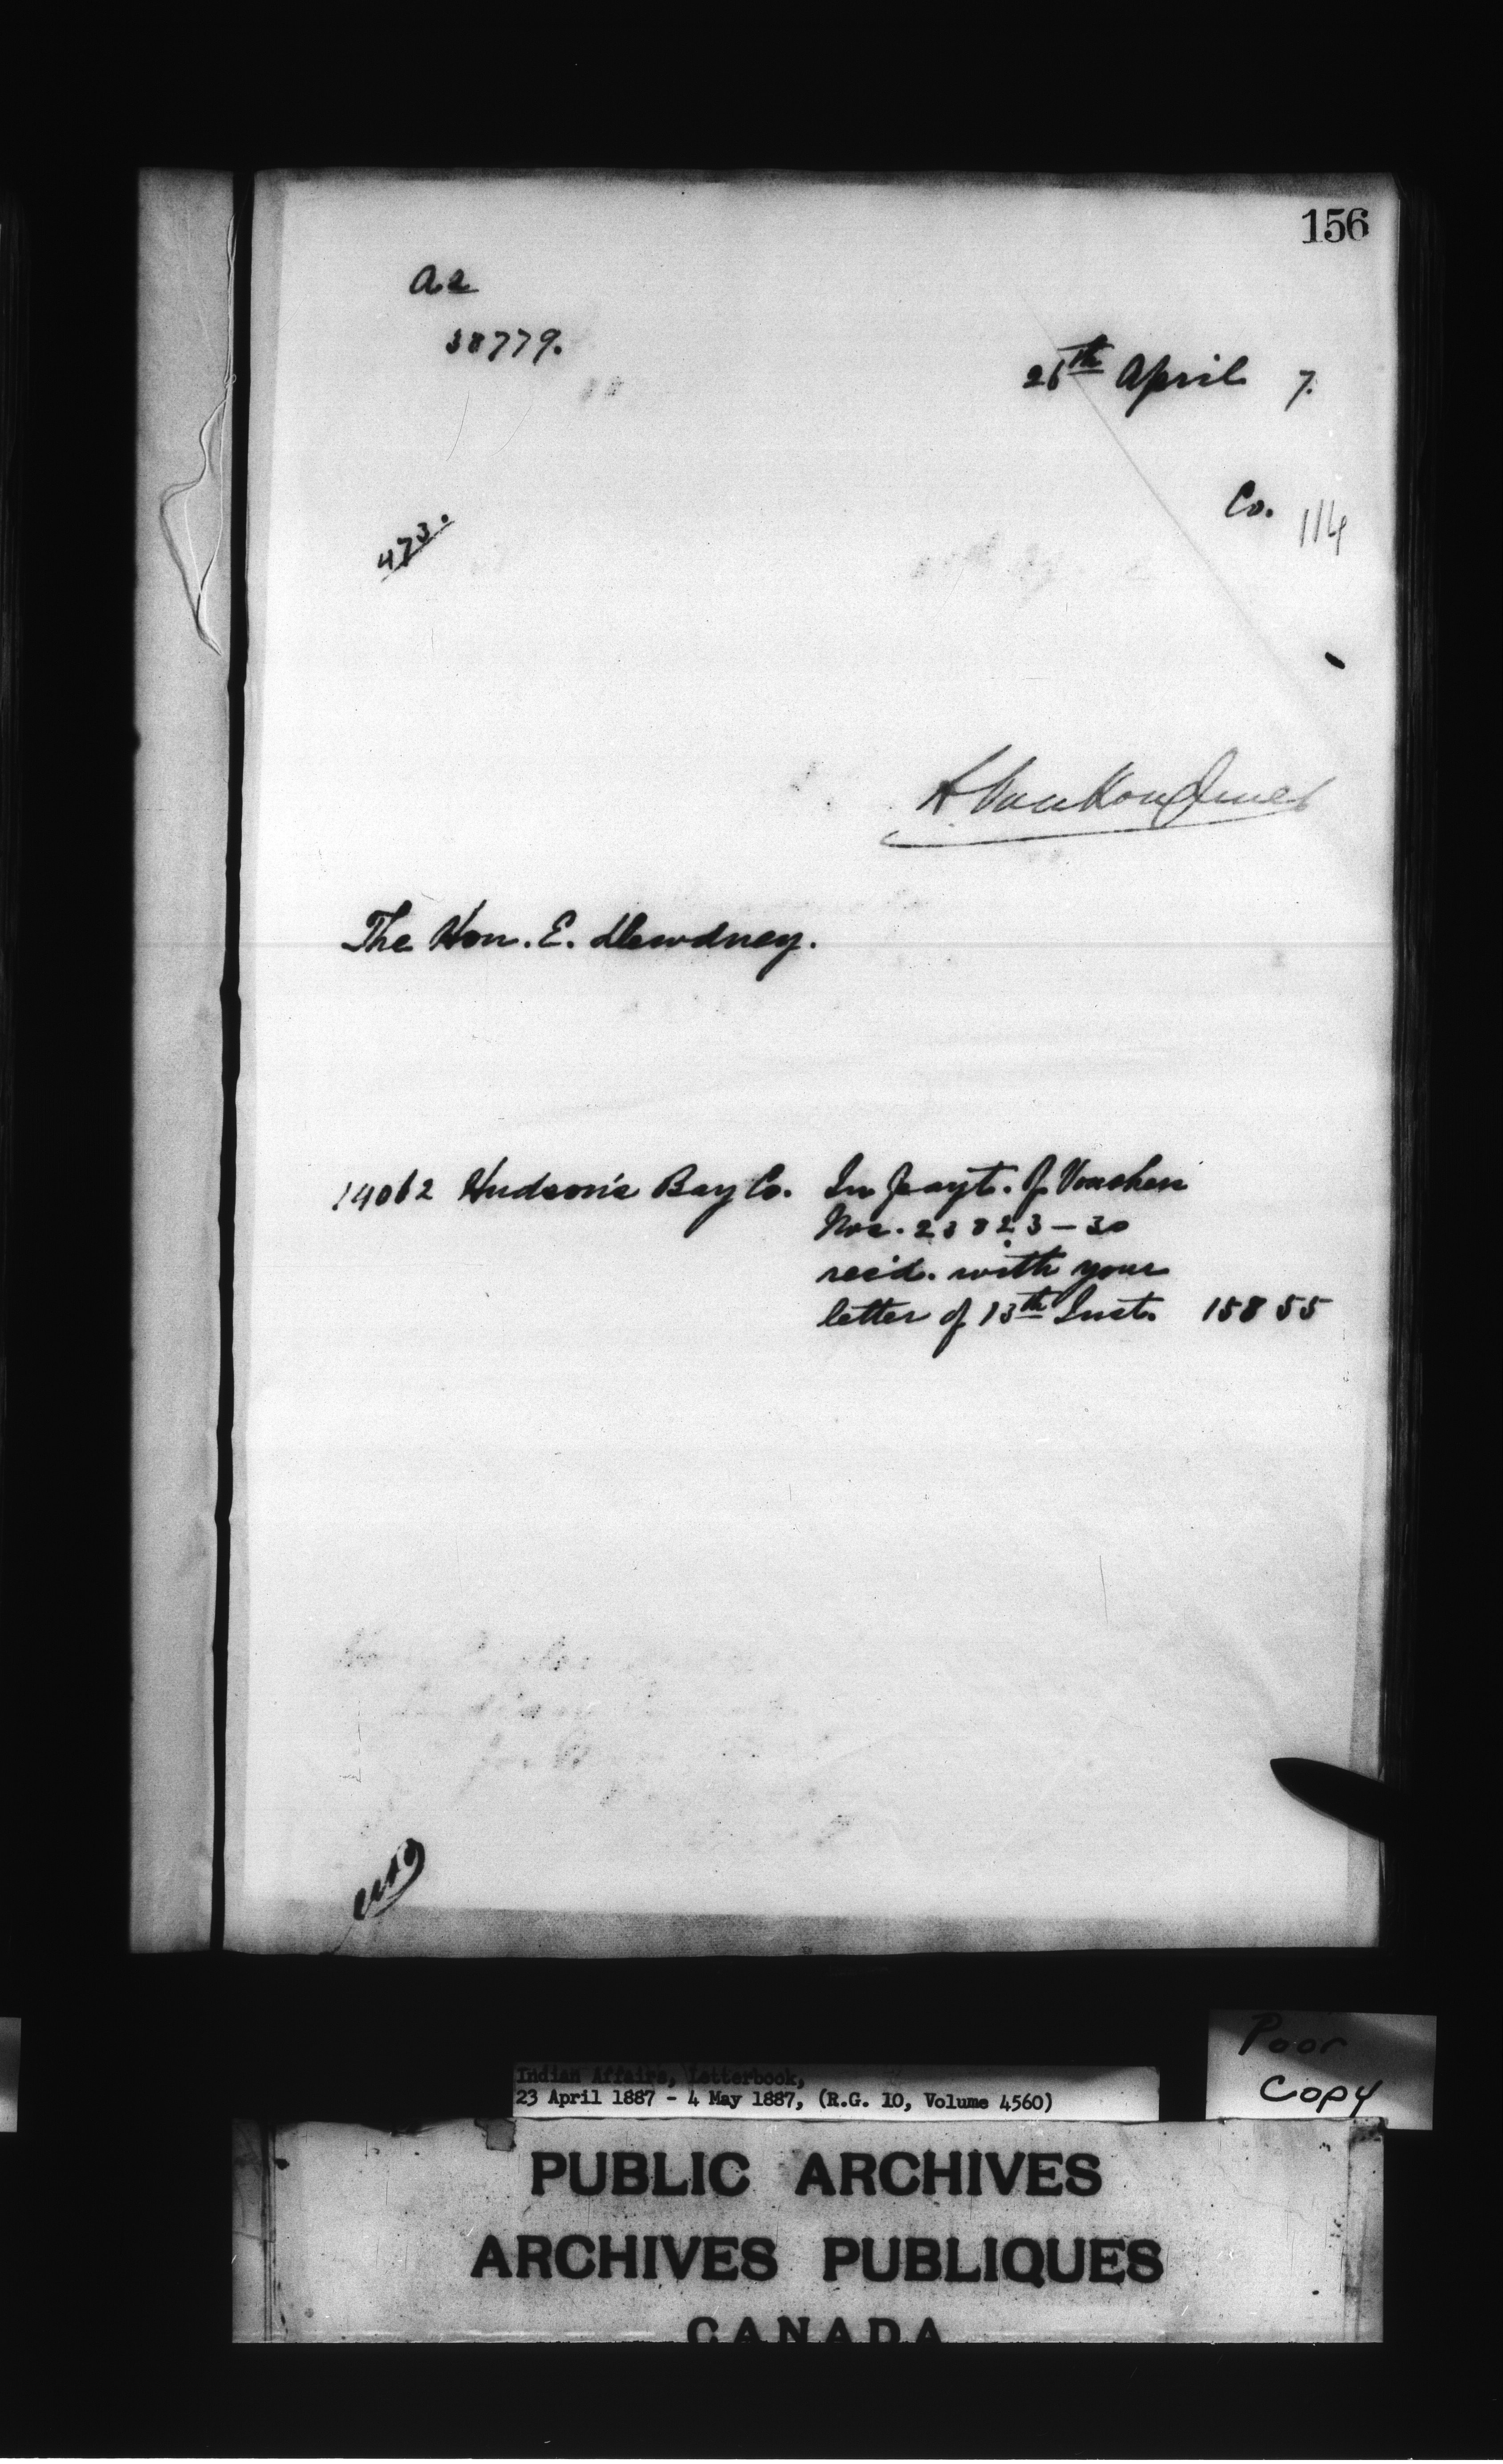 156
A2
38779.
26th April 7.
Co. 114
473.
L. VanKoughnet
The Hon. E. Dewdney.
14062 Hudson's Bay Co. In payt. of Vouchers
Nos. 23823-30
recd. with your
letter of 13th Inst. 158 55
Poor
Copy
Indian Affairs, Letterbook,
23 April 1887 - 4 May 1887, (R.G. 10, Volume 4560)
PUBLIC ARCHIVES
ARCHIVES PUBLIQUES
CANADA